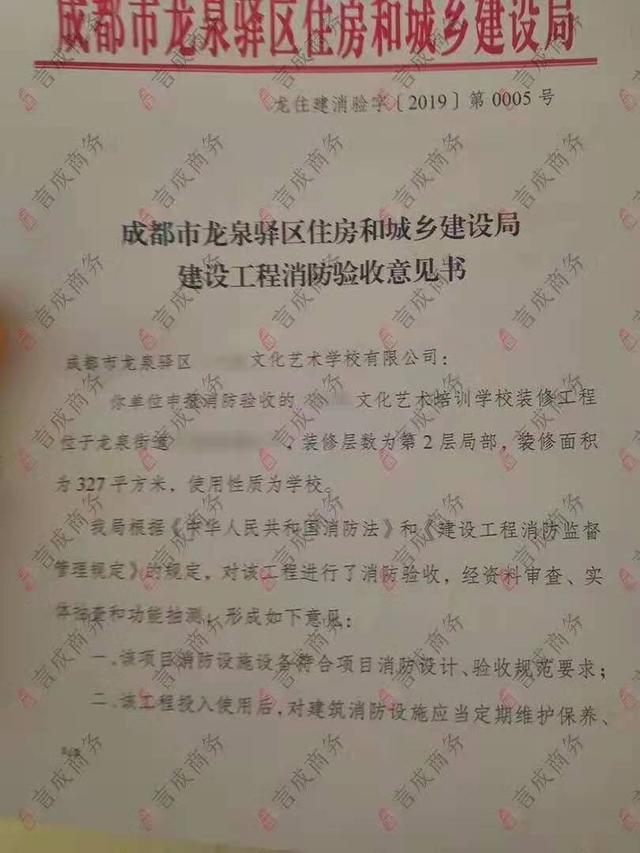 成都市龙泉驿区住房和城乡建设局
龙住建消验字〔2019〕第0005号
成都市龙泉驿区住房和城乡建设局
建设工程消防验收意见书
成都市龙泉驿区 文化艺术学校有限公司：
你单位申报消防验收的 文化艺术培训学校装修工程
位于龙泉街道 ，装修层数为第2层局部，装修面积
为327平方米，使用性质为学校。
我局根据《中华人民共和国消防法》和《建设工程消防监督
管理规定》的规定，对该工程进行了消防验收，经资料审查、实
体抽查和功能抽测，形成如下意见：
一、该项目消防设施设备符合项目消防设计、验收规范要求；
二、该工程投入使用后，对建筑消防设施应当定期维护保养、
言成商务